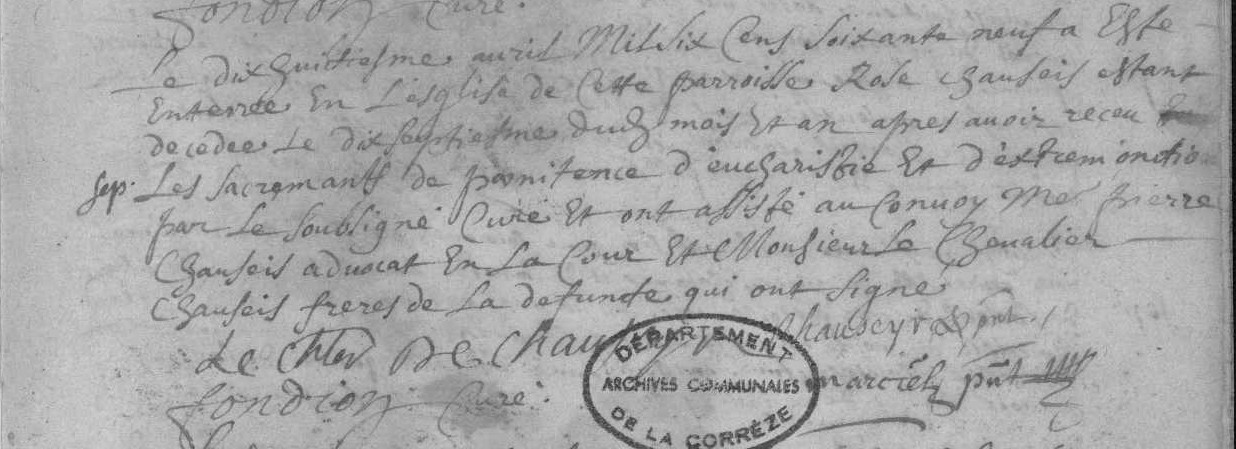 fondion Curé.
Le dixhuictiesme auril Mil Six Cens Soixante neuf a Esté
Enterrée En L'esglise de Cette parroisse Rose chauseis estant
decedee Le dixseptiesme dud mois Et an apres auoir receu
Sep. Les sacremants de pœnitence d'eucharistie Et d'extremonctio
par Le Soubsigné Curé Et ont assisté au Conuoy Me pierre
Chauseis aduocat En La Cour Et Monsieur Le Cheualier
Chauseis freres de La defuncte qui ont signé
Le Cher De Chauseys Chauseys pnt
fondion Curé. marcielh pnt
DÉPARTEMENT
ARCHIVES COMMUNALES
DE LA CORRÈZE